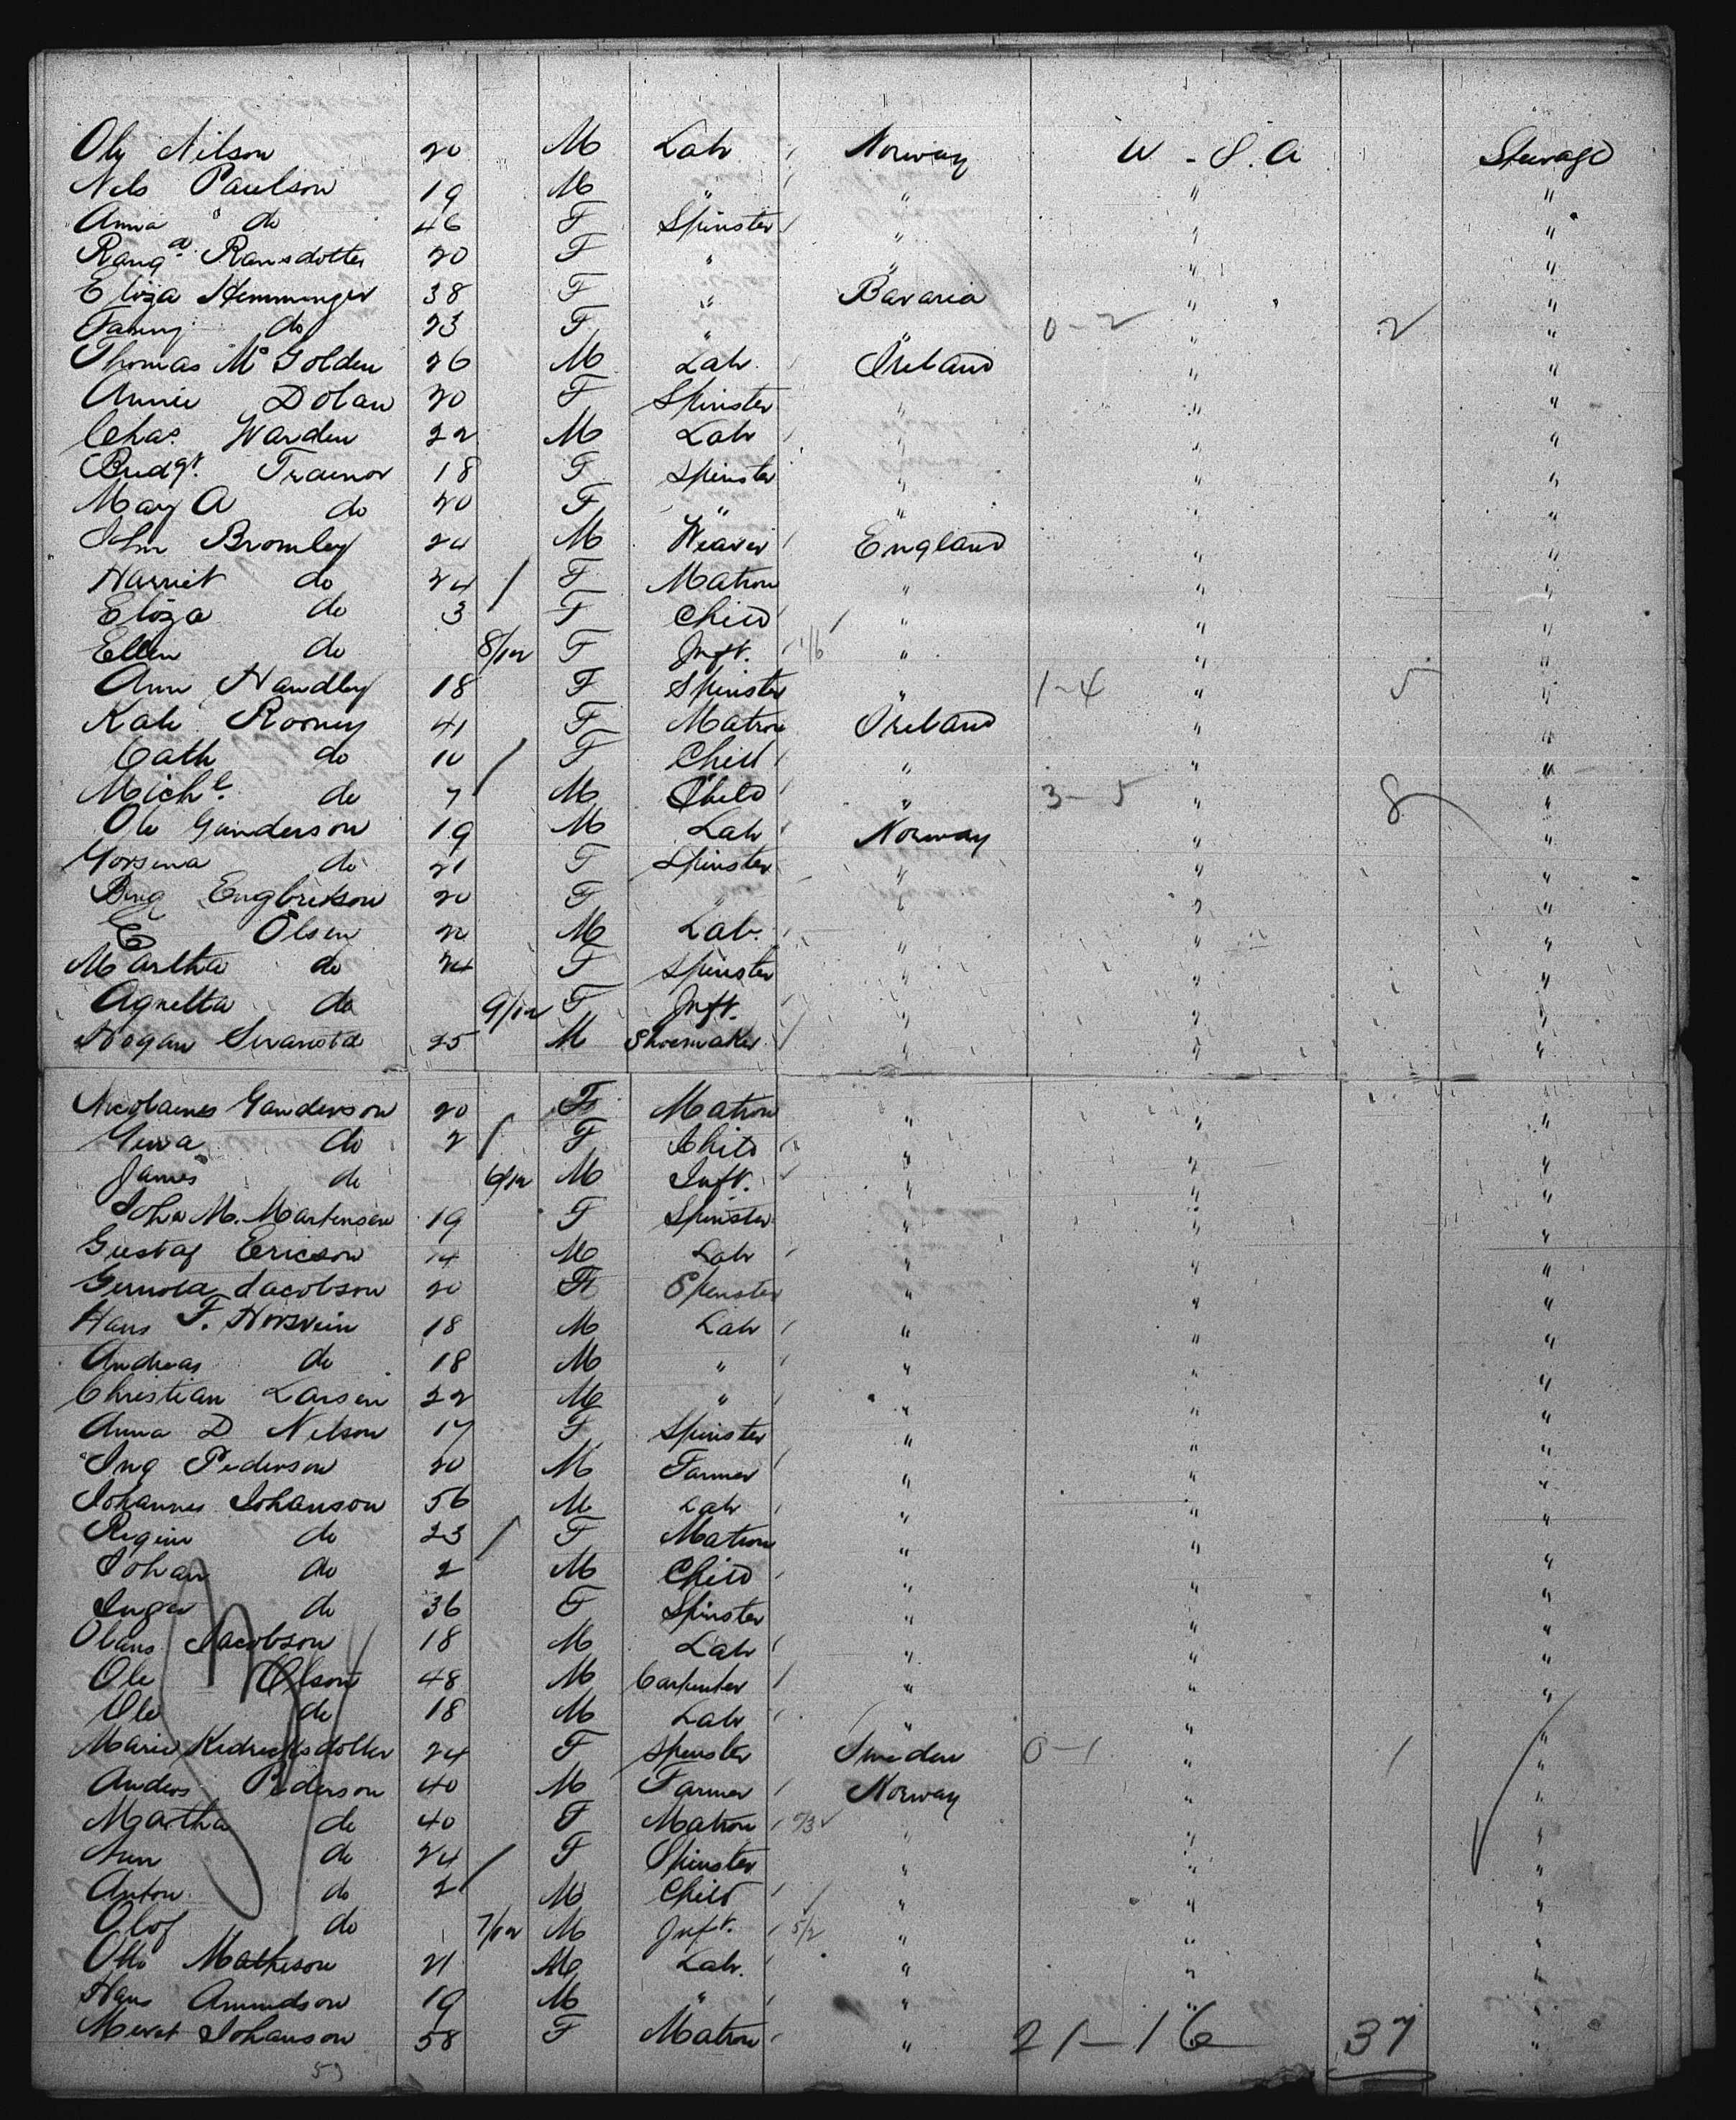 Oly Nilson 20 M Lab Norway U.S.A Steerage
Nels Paulson 19 M " " " "
Anna do 46 F Spinster " " "
Rang.a Ransdotter 20 F " " " "
Eliza Hemminger 38 F " Bavaria " "
Fanny do 23 F " " 0-2 " 2 "
Thomas McGolden 26 M Lab. Ireland " "
Annie Dolan 20 F Spinster " " "
Chas. Warden 22 M Lab " " "
Bridgt. Trainor 18 F Spinster " " "
Mary A do 20 F " " " "
John Bromley 24 M Weaver England " "
Harriet do 24 F Matron " " "
Eliza do 3 F Child " " "
Ellen do 8/12 F Inft. 1/6 " " "
Ann Handley 18 F Spinster " 1-4 " 5 "
Kate Rooney 41 F Matron Ireland " "
Cath do 10 F Child " " "
Michl. do 7 M Child " 3-5 " 8 "
Ole Gunderson 19 M Lab Norway " "
do 21 F Spinster " " "
Engbrikson 20 F " " " "
Olsen 22 M Lab. " " "
Martha do 24 F Spinster " " "
Agnetta do 9/12 F Inft. " " "
Hogan 25 M Shoemaker " " "
Ganderson 20 F Matron " " "
do 2 F Child " " "
James do 6/12 M Inft. " " "
Joha M. Martensen 19 F Spinster " " "
Gustaf Ericson 14 M Lab " " "
Jacobson 20 F Spinster " " "
Hans F. 18 M Lab " " "
Andreas do 18 M " " " "
Christian Larsen 22 M " " " "
Anna D Nelson 17 F Spinster " " "
Ing Pederson 20 M Farmer " " "
Johannes Johanson 56 M Lab " " "
Regine do 23 F Matron " " "
Johan do 2 M Child " " "
Inger do 36 F Spinster " " "
Olaus Jacobson 18 M Lab " " "
Ole Olson 48 M Carpenter " " "
Ole do 18 M Lab " " "
Marie 24 F Spinster Sweden 0-1 " 1 "
Anders Pederson 40 M Farmer Norway " "
Martha do 40 F Matron " " "
do 24 F Spinster " " "
Anton do 2 M Child " " "
Olof do 7/12 M Inft. 5/2 " " "
Otto Matheson 21 M Lab. " " "
Hans Amundson 19 M " " " "
Johanson 58 F Matron " 21-16 37 "